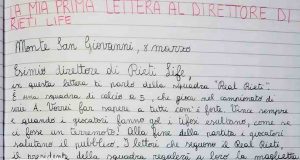 LA MIA PRIMA LETTERA AL DIRETTORE DI
RIETI LIFE
Monte San Giovanni, 8 marzo
Esimio direttore di Rieti Life,
in questa lettera ti parlo della squadra "Real Rieti".
È una squadra di calcio a 5, che gioca nel campionato di
serie A. Vorrei far sapere a tutti com'è forte. Vince sempre
e quando i giocatori fanno gol i tifosi esultano, come se
ci fosse un terremoto! Alla fine della partita i giocatori
salutano il pubblico. I lettori che seguono il Real Rieti
il presidente della squadra regalerà a loro la maglietta